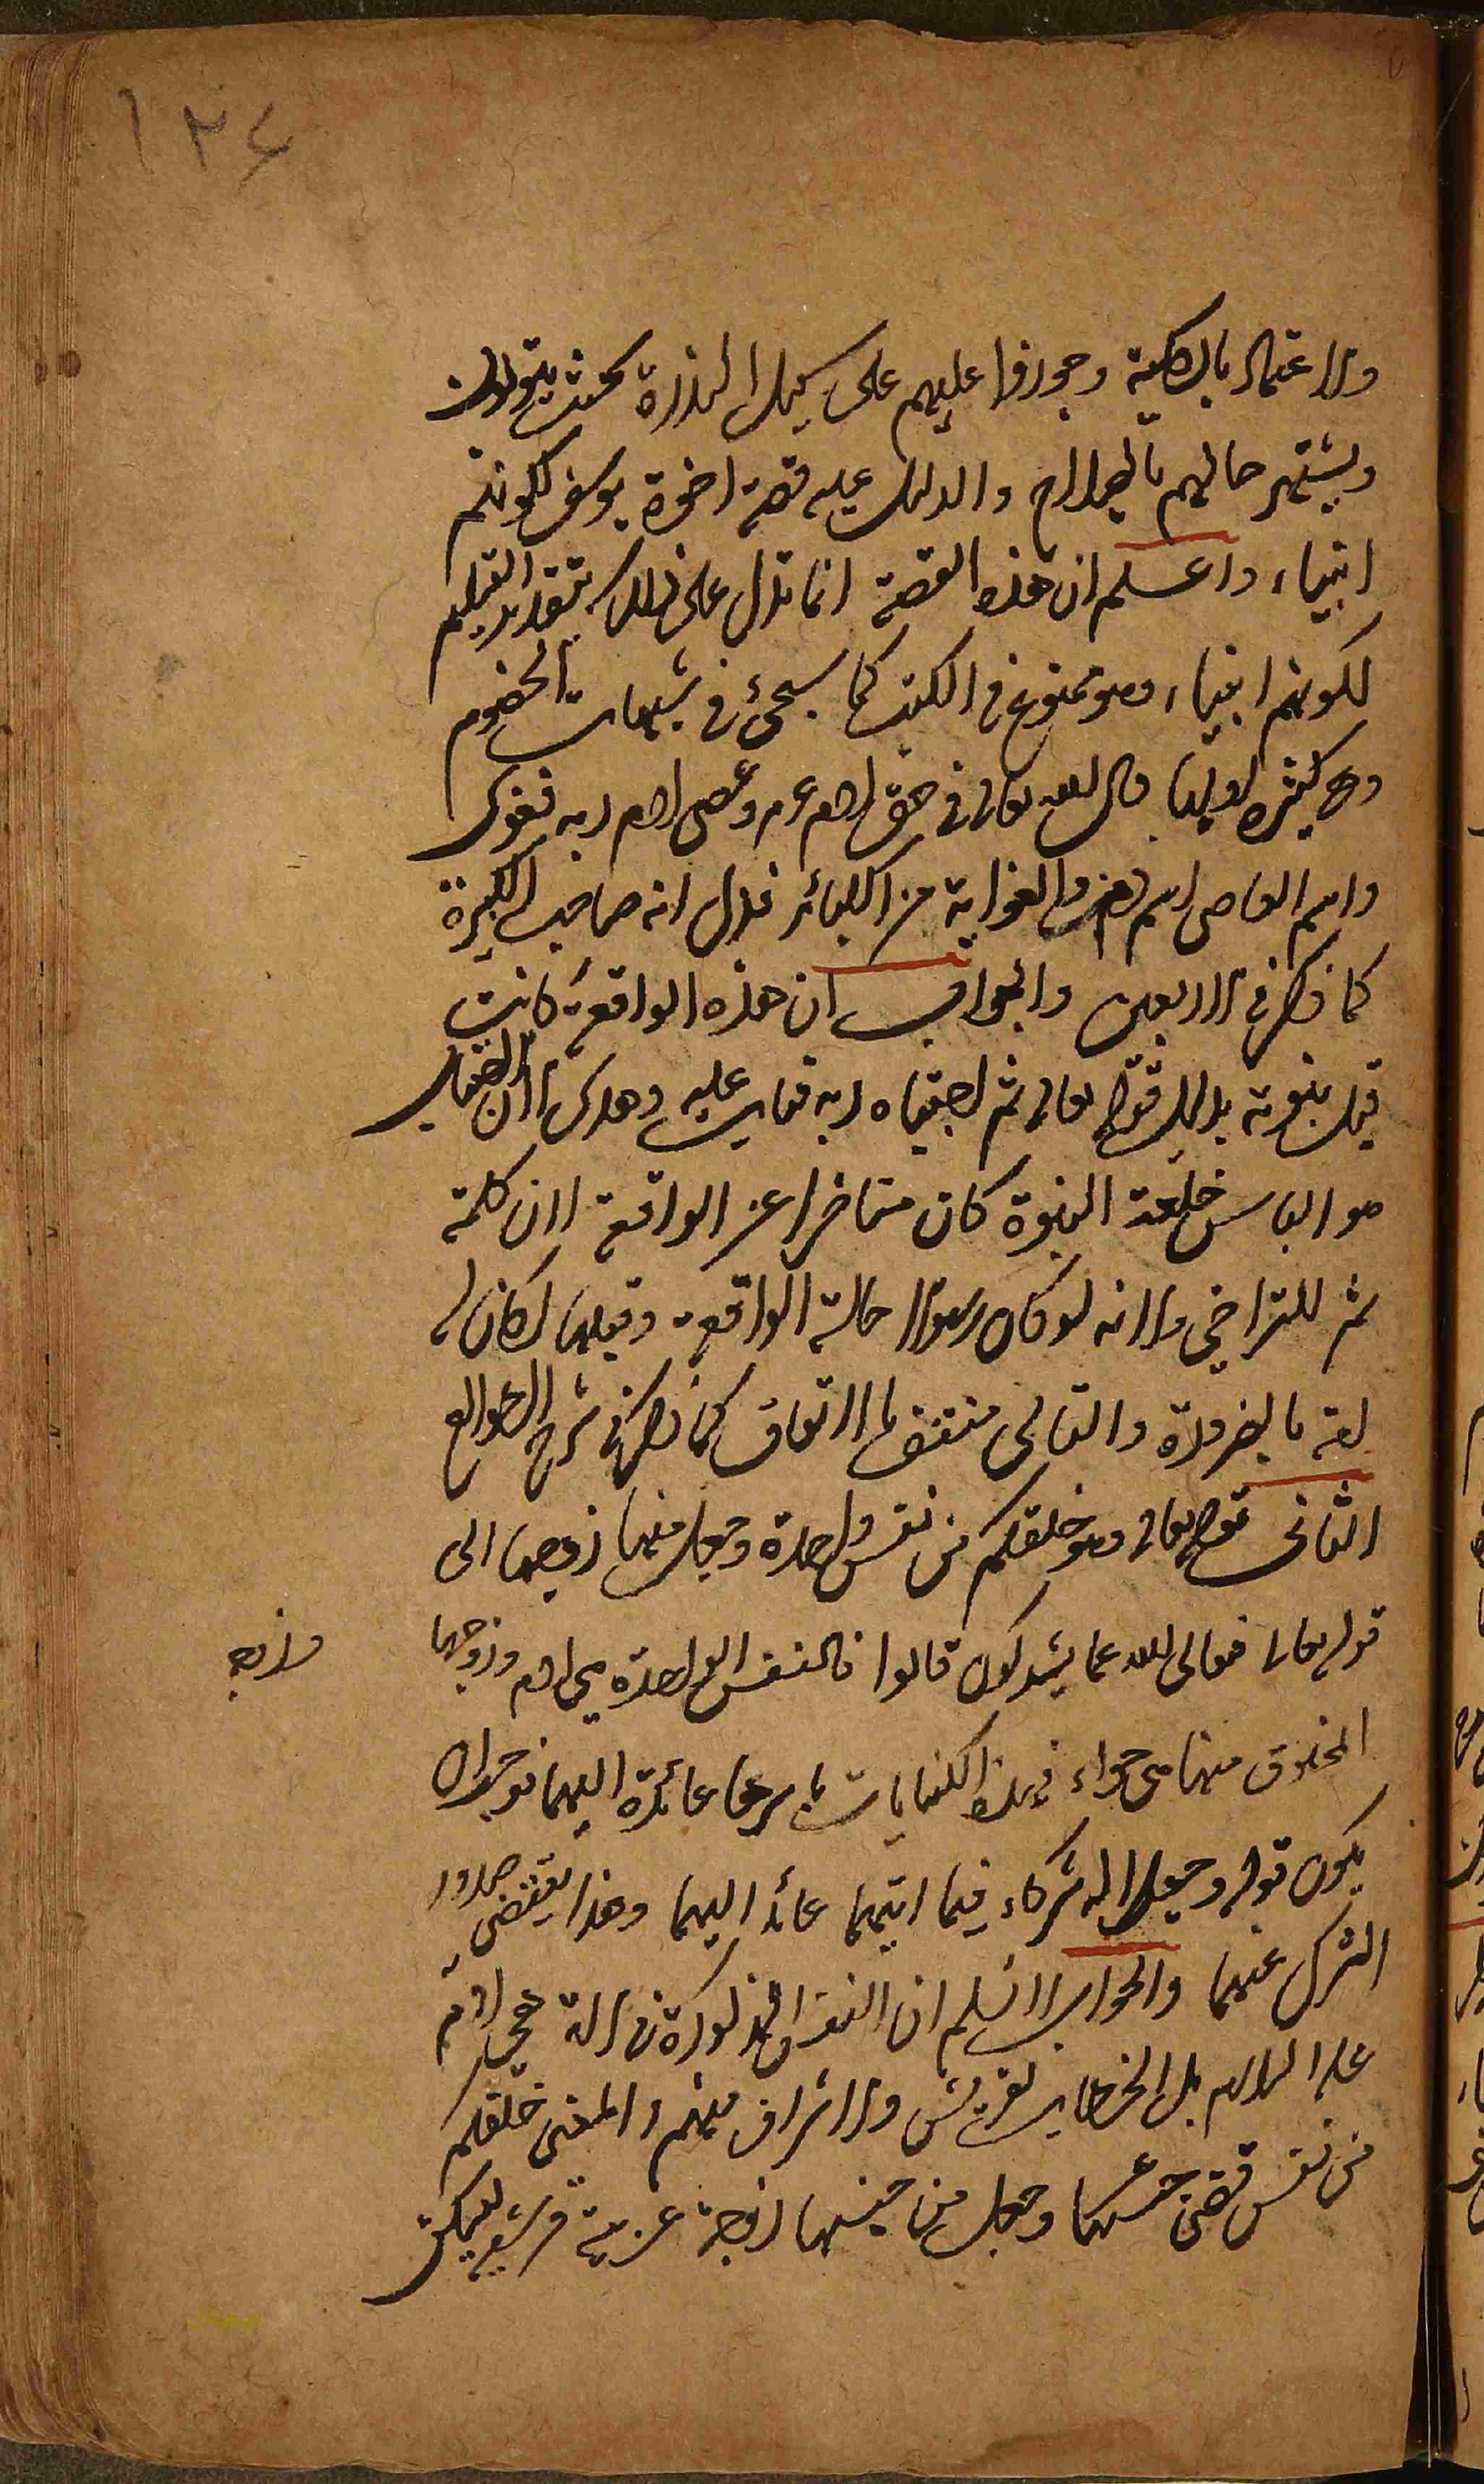 ١٢٤
والاعتماد بالكلية وجوزوا عليهم على سبيل الندرة بحيث يتوبون
ويشتهر حالهم بالصلاح والدليل عليه قصة اخوة يوسف لكونهم
انبياء واعلم ان هذه القصة انما تدل على ذلك بتقدير التسليم
لكونهم انبياء وهو ممنوع في الكتب كما سيجئ في شبهات الخصوم
وهي كثيرة الاولى قال الله تعالى في حق ادم عم وعصى ادم ربه فغوى
واسم العاصي اسم ذم والغواية من الكبائر فدل انه صاحب الكبيرة
كما ذكر في الاربعين والجواب ان هذه الواقعة كانت
قبل نبوته بدليل قوله تعالى ثم اجتباه ربه فتاب عليه وهدى لان الاجتباء
هو الباس خلعة النبوة كان متاخرا عن الواقعة لان كلمة
ثم للتراخي ولانه لو كان رسولا حالة الواقعة وقبلها لكان له
امة بالضرورة والتالى منتف بالاتفاق كما ذكر في شرح الطوالع
الثانى قوله تعالى وهو خلقكم من نفس واحدة وجعل منها زوجها الى
قوله تعالى فتعالى الله عما يشركون قالوا فالنفس الواحدة هي ادم وزوجها
المخلوق منها هي حواء فهذه الكنايات باسرها عائدة اليهما فوجب ان
يكون قوله وجعلا له شركاء فيما اتيهما عائدا اليهما وهذا يقتضى صدور
الشرك عنهما والجواب لا نسلم ان النفس المذكورة في الاية هي ادم
عليه السلام بل الخطاب لقريش والاشراف منهم والمعنى خلقكم
من نفس قصى وجعل من جنسها زوجة عربية قرشية ليسكن